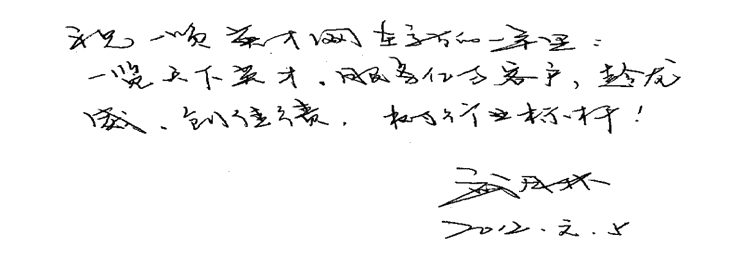 祝 一览英才网在新的一年里:
一览天下英才、服务亿万客户,趁龙
威、创佳绩、树行业标杆!
2012.元.5